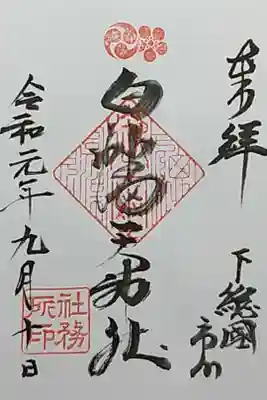 奉拝
下総國
市川
白幡天神社
令和元年九月十日
社務所印